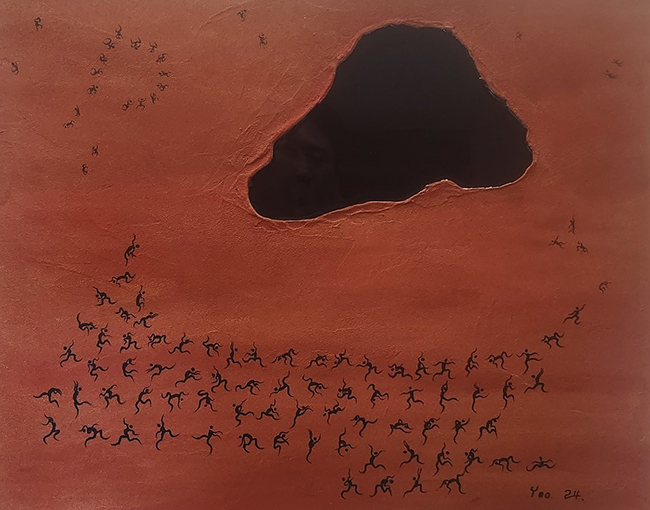 Yoo 24.